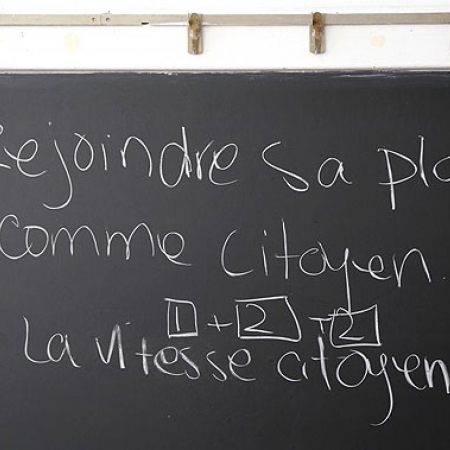 Rejoindre sa pla
comme citoyen.
1 + 2 + 2
La vitesse citoyen